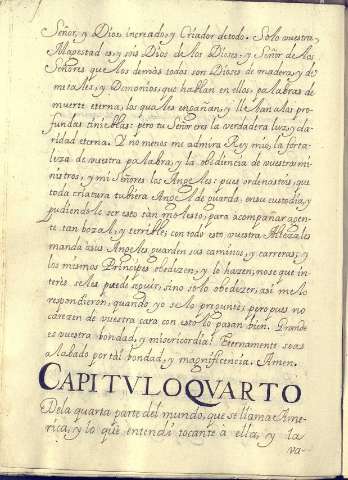 Señor, y Dios increado, y Criador de todo. Solo vuestra
Magestad es, y sois Dios de los Dioses, y Señor de los
Señores que los demàs todos son Dioses de madera, y de
metales, y Demonios, que hablan en ellos, palabras de
muerte eterna, los quales engañan, y lleban a las pro-
fundas tinieblas: pero tu Señor eres la verdadera luz, y cla-
ridad eterna. Y no menos me admira Rey mio, la forta-
leza de vuestra palabra, y la obediencia de vuestros mi
nistros, y mis Señores los Angeles: pues ordenastois, que
toda criatura tubiera Angel de guarda, en su custodia, y
pudiendole ser esto tan molesto, para acompañar a gen-
te tan bozal, y terrible; con todo esto vuestra Alteza les
manda à sus Angeles, guarden sus caminos, y carreras, y
los mismos Principes obedezen, y lo hazen, no se que in
terès se les puede seguir, sino solo obedezer, asi me lo
respondieron, quando yo se lo preguntè; pero pues no
carezen de vuestra cara con esto lo pasan bien. Grande
es vuestra bondad, y misericordia! Eternamente seas
alabado por tal bondad, y magnificencia. Amen.
CAPITVLO QVARTO
De la quarta parte del mundo, que se llama Ame-
rica, y lo que entendi tocante a ella, y la
va-